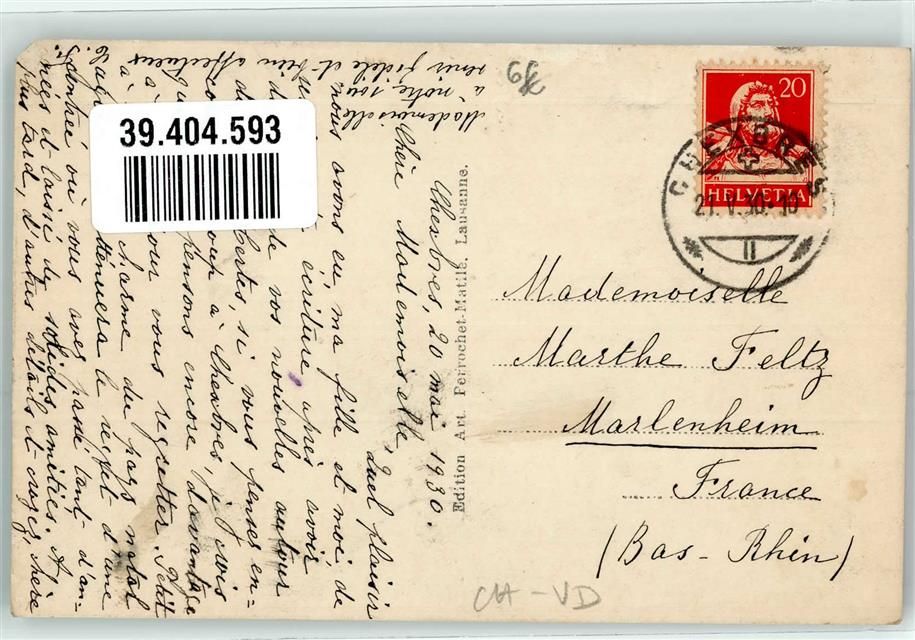 39.404.593
Chexbres, 20 mai 1930.
Chère Mademoiselle,
Quel plaisir
nous avons eu, ma fille et moi, de
écriture après avoir
de vos nouvelles autour
si vous pensez en-
coup à Chexbres, je crois
pensons encore davantage
pour vous regretter. Petit
à charme du pays natal
atténuera le regret d'une
contrée où vous avez passé tant d'an-
nées et laissé de solides amitiés. A
plus tard, d'autres détails et croyez, chère
Mademoiselle
à notre sou-
venir fidèle et bien affectueux
Edition Art. Perrochet-Matile, Lausanne.
99
20
HELVETIA
CHEXBRES
21.V.30.-10
II
Mademoiselle
Marthe Feltz
Marlenheim
France
(Bas-Rhin)
CH-VD